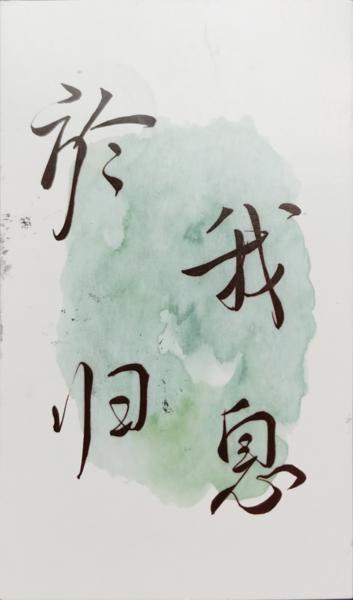 於我
归息